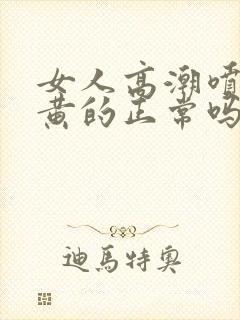 女人高潮喷
黄的正常吗
迪馬特奥